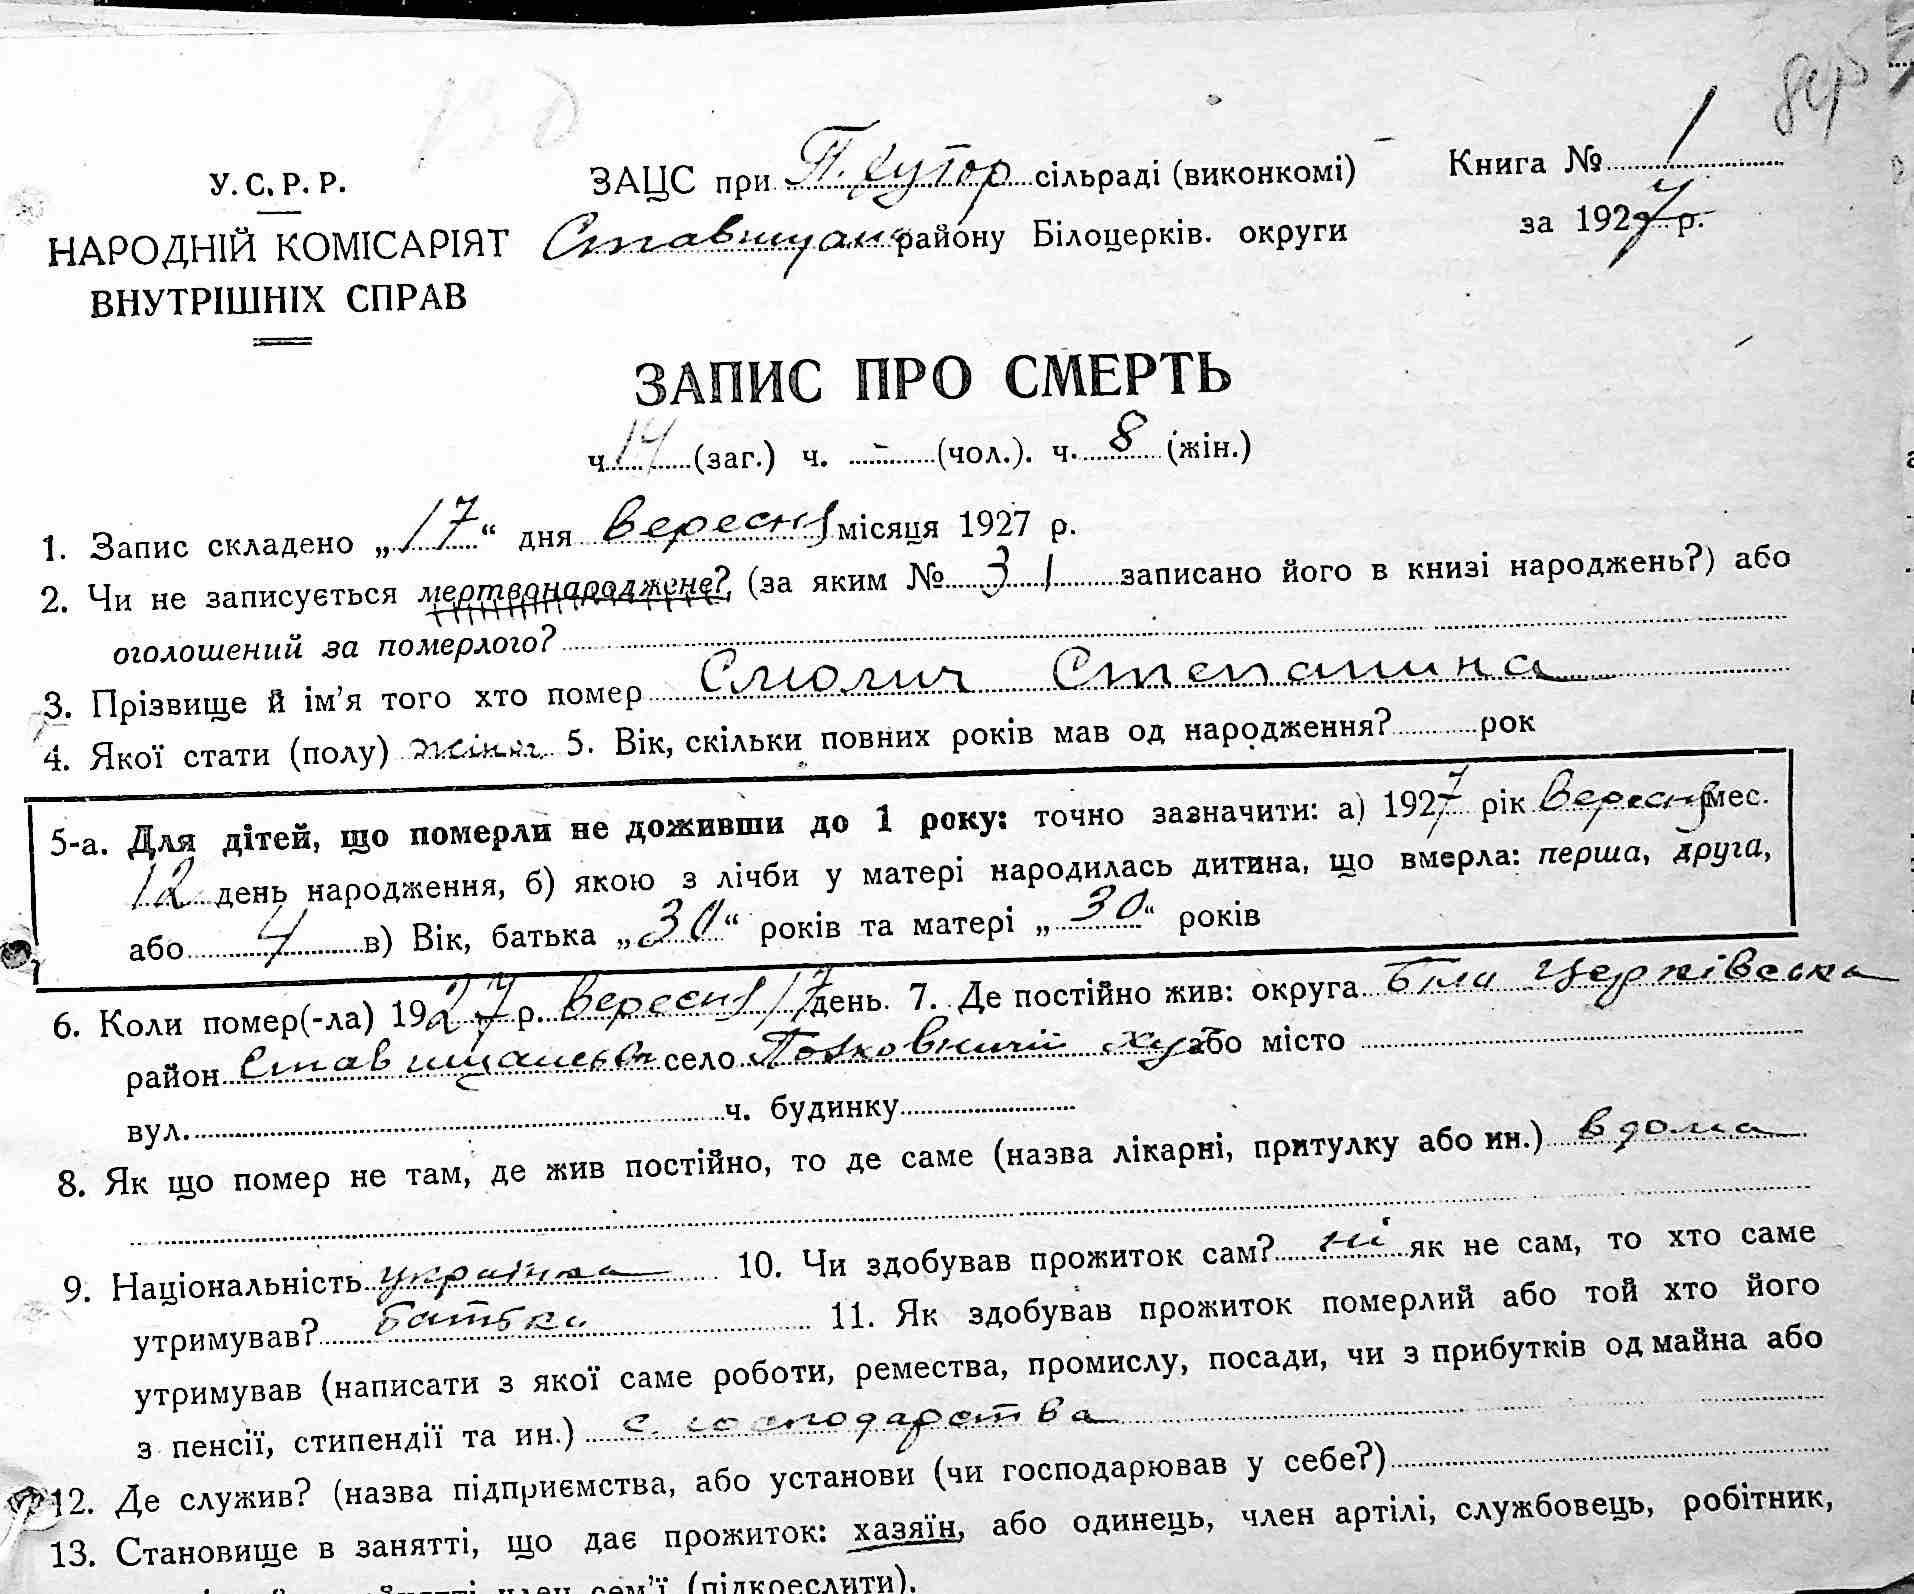 У. С. Р. Р.
НАРОДНІЙ КОМІСАРІЯТ
ВНУТРІШНІХ СПРАВ
ЗАЦС при П. Хутор сільраді (виконкомі)
Ставищанс району Білоцерків. округи
Книга № 1
за 1927 р.
ЗАПИС ПРО СМЕРТЬ
ч. 14 (заг.) ч. - (чол.). ч. 8 (жін.)
1. Запис складено „17“ дня вересня місяця 1927 р.
2. Чи не записується мертвонароджене? (за яким № 31 записано його в книзі народжень?) або
оголошений за померлого?
3. Прізвище й ім’я того хто помер Смолич Степанина
4. Якої стати (полу) жіняч 5. Вік, скільки повних років мав од народження? рок
5-а. Для дітей, що померли не доживши до 1 року: точно зазначити: а) 1927 рік вересня мес.
12 день народження, б) якою з лічби у матері народилась дитина, що вмерла: перша, друга,
або 4 в) Вік, батька „30“ років та матері „30“ років
6. Коли помер(-ла) 1927 р. вересня 17 день. 7. Де постійно жив: округа Біла Церківська
район Ставищанськ село Полковничій ху або місто
вул. ч. будинку
8. Як що помер не там, де жив постійно, то де саме (назва лікарні, притулку або ин.) вдома
9. Національність українка 10. Чи здобував прожиток сам? ні як не сам, то хто саме
утримував? батьки 11. Як здобував прожиток померлий або той хто його
утримував (написати з якої саме роботи, ремества, промислу, посади, чи з прибутків од майна або
з пенсії, стипендії та ин.) с. господарства
12. Де служив? (назва підприємства, або установи (чи господарював у себе?)
13. Становище в занятті, що дає прожиток: хазяїн, або одинець, член артілі, службовець, робітник,
член сем’ї (підкреслити).